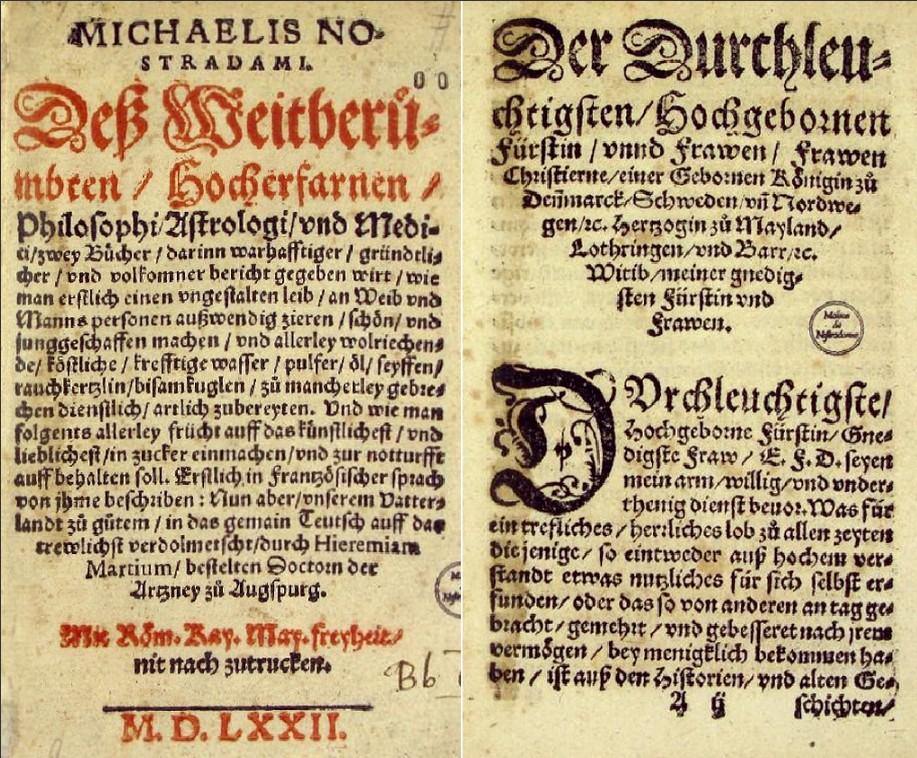 MICHAELIS NO-
STRADAMI.
Deß Weitberů-
mbten / Hocherfarnen /
Philosophi/Astrologi/vnd Medi-
ci/zwey Bücher / darinn warhafftiger / gründtli-
cher / vnd volkomner bericht gegeben wirt / wie
man erstlich einen vngestalten leib / an Weib vnd
Manns personen außwendig zieren / schön/ vnd
junggeschaffen machen / vnd allerley wolriechen-
de/ köstliche / krefftige wasser / pulfer/ öl/ seyffen/
rauchkertzlin/bisamkuglen / zů mancherley gebre-
chen dienstlich/ artlich zubereyten. Vnd wie man
folgents allerley frücht auff das künstlichest / vnd
lieblichest/in zucker einmachen/vnd zur notturfft
auff behalten soll. Erstlich in Frantzösischer sprach
von jhme beschriben : Nun aber/vnserem Vatter-
landt zů gůtem / in das gemain Teutsch auff das
trewlichst verdolmetscht/durch Hieremiam
Martium/ bestelten Doctorn der
Artzney zů Augspurg.
Mit Röm. Kay. May. freyheit/
nit nach zutrucken.
Bb
M. D. LXXII.
Der Durchleu-
chtigsten/Hochgebornen
Fürstin / vnnd Frawen / Frawen
Christierne/einer Gebornen Königin zů
Denmarck/Schweden/vn̄ Nordwe-
gen/ꝛc. Hertzogin zů Mayland/
Lothringen/vnd Barr/ꝛc.
Witib/meiner gnedig-
sten Fürstin vnd
Frawen.
DVrchleuchtigste/
Hochgeborne Fürstin/ Gne-
digste Fraw / E. F. D. seyen
mein arm/willig/vnd vnder-
thenig dienst beuor. Was für
ein trefliches / herrliches lob zů allen zeyten
die jenige / so eintweder auß hochem ver-
standt etwas nutzliches für sich selbst er-
funden/ oder das so von anderen an tag ge-
bracht/ gemehrt / vnd gebesseret nach jrem
vermögen / bey menigklich bekommen ha-
ben / ist auß den Historien/ vnd alten Ge-
A ij schichten/